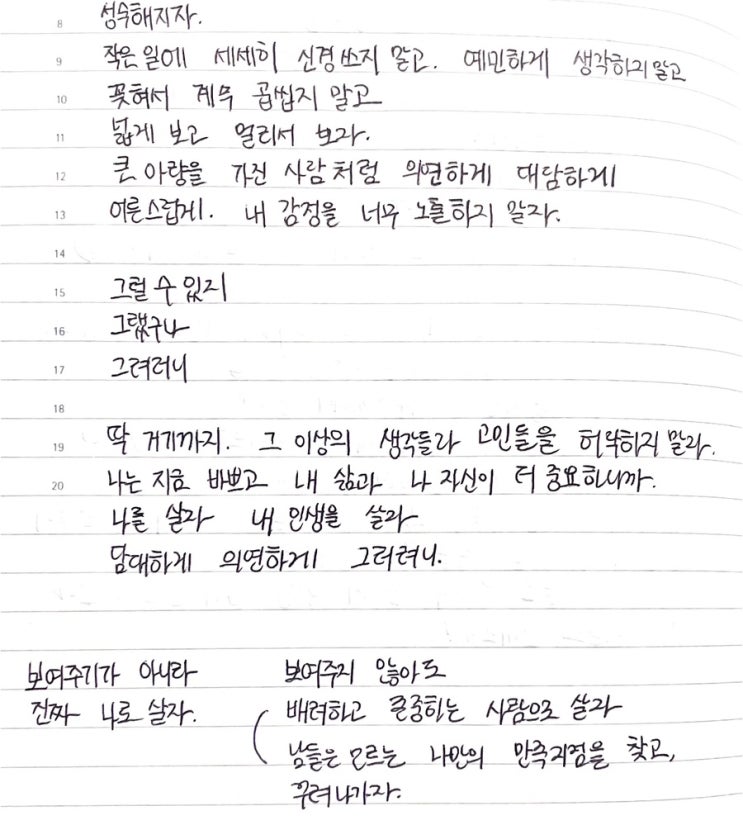 8 성숙해지자.
9 작은 일에 세세히 신경쓰지 말고. 예민하게 생각하지 말고
10 꽂혀서 계속 곱씹지 말고
11 넓게 보고 멀리서 보자.
12 큰 아량을 가진 사람처럼 의연하게 대담하게
13 어른스럽게. 내 감정을 너무 노출하지 말자.
14
15 그럴 수 있지
16 그랬구나
17 그려러니
18
19 딱 거기까지. 그 이상의 생각들과 고민들을 허락하지 말라.
20 나는 지금 바쁘고 내 삶과 나 자신이 더 중요하니까.
나를 살라 내 인생을 살라
담대하게 의연하게 그러려니.
보여주기가 아니라
진짜 나로 살자.
보여주지 않아도
배려하고 존중하는 사람으로 살라
남들은 모르는 나만의 만족지점을 찾고,
꾸려나가자.